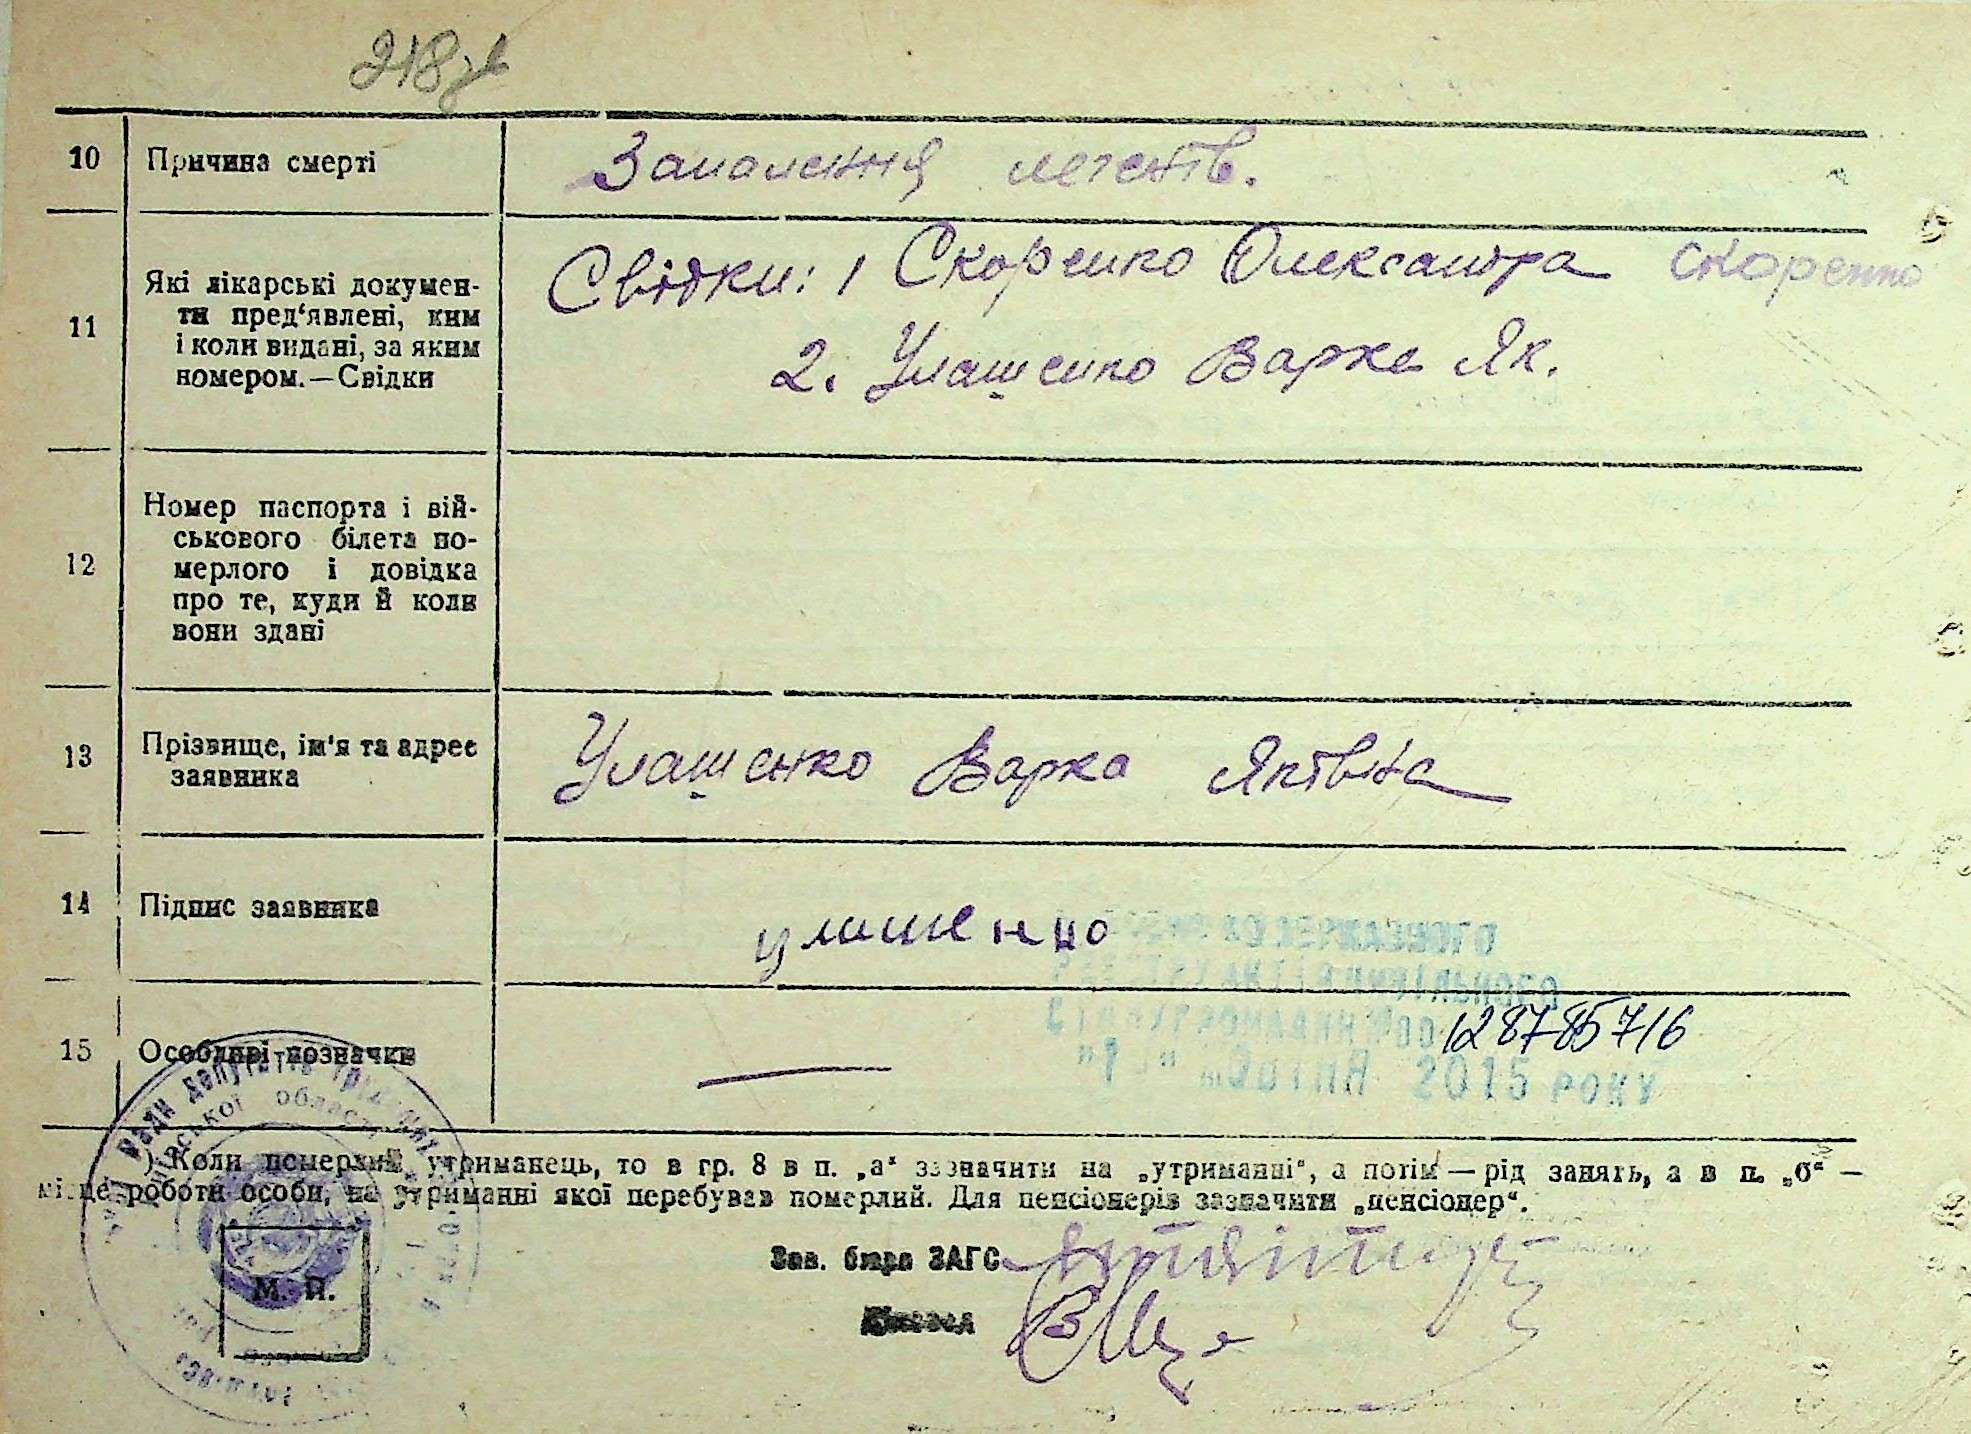 218зв
10 Причина смерті Запалення легенів.
11 Які лікарські докумен-
ти пред‘явлені, ким
і коли видані, за яким
номером.—Свідки
Свідки: 1 Скоренко Олександра Скоренко
2. Улашенко Варка Як.
12 Номер паспорта і вій-
ськового білета по-
мерлого і довідка
про те, куди й коли
вони здані
13 Прізвище, ім'я та адрес
заявника
Улашенко Варка Яківна
14 Підпис заявника
ДЕРЖАВНОГО
15 Особливі позначки
128785716
2015 РОКУ
Ради депутатів
області
) Коли померлий утриманець, то в гр. 8 в п. „а“ зазначити на „утриманні“, а потім — рід занять, а в п. „б“ —
місце роботи особи, на утриманні якої перебував померлий. Для пенсіонерів зазначити „пенсіонер“.
Зав. бюро ЗАГС
М. П.